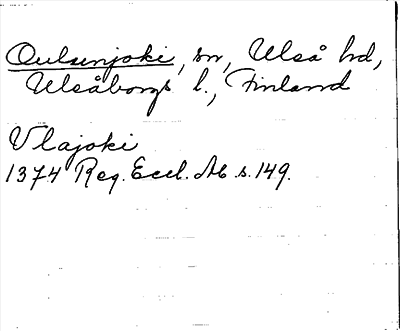 Oulunjoki, sn, Ulså hd,
Ulsåborgs l., Finland
Vlajoki
1374 Reg. Eccl. Ab s. 149.